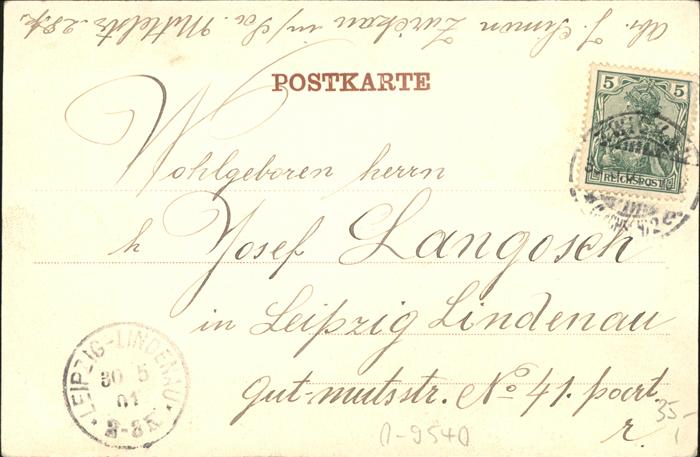 Abs. J. Simon Zwickau in/Sa. Mittelstr. 28
POSTKARTE
5 5
REICHSPOST
Wohlgeboren herrn
h Josef Langosch
in Leipzig Lindenau
Gut-mutsstr. No 41. part.
r.
LEIPZIG-LINDENAU
30 5
01
2-3N.
35